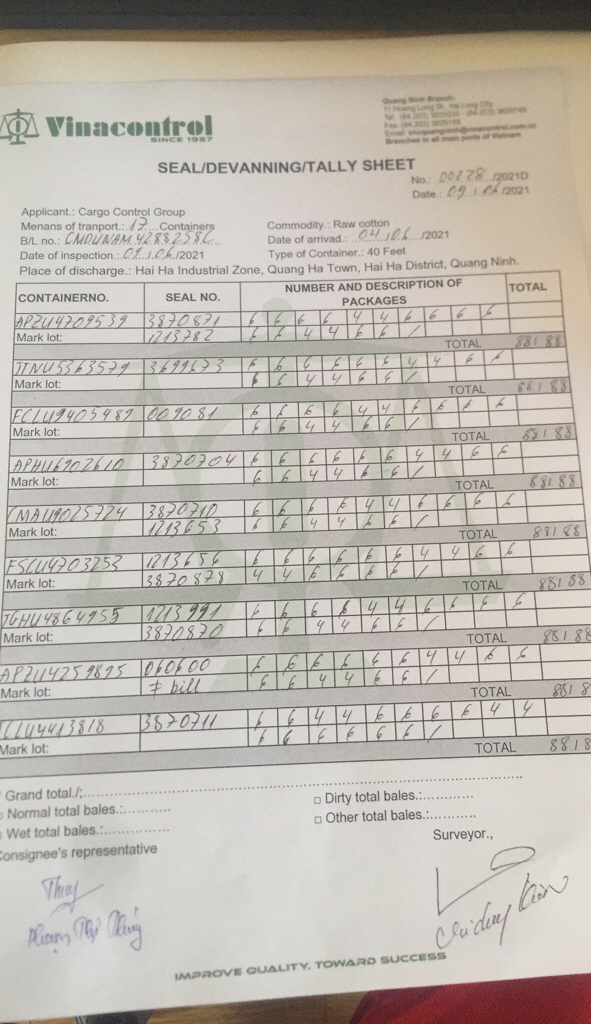 Quang Ninh Branch:
Branches in all main ports of Vietnam
Vinacontrol
SINCE 1957
SEAL/DEVANNING/TALLY SHEET
No.: 00278 /2021D
Date.: 09 / 06 /2021
Applicant.: Cargo Control Group
Menans of tranport.: 17 Containers
Commodity.: Raw cotton
B/L no.: CMDUNAM4288258C
Date of arrivad.: 04 / 06 /2021
Date of inspection.: 09 / 06 /2021
Type of Container.: 40 Feet
Place of discharge.: Hai Ha Industrial Zone, Quang Ha Town, Hai Ha District, Quang Ninh.
CONTAINERNO. SEAL NO. NUMBER AND DESCRIPTION OF PACKAGES TOTAL
APZU4709539 3870871 6 6 6 6 4 4 6 6 6 6
Mark lot: 1213782 6 6 4 4 6 6 /
TOTAL 88/88
3699673 6 6 6 6 6 6 4 4 6 6
Mark lot: 6 6 4 4 6 6 /
TOTAL 88/88
FCLU9405489 009081 6 6 6 6 4 4 6 6 6 6
Mark lot: 6 6 4 4 6 6 /
TOTAL 88/88
APHU6902610 3870704 6 6 6 6 6 6 4 4 6 6
Mark lot: 6 6 4 4 6 6 /
TOTAL 88/88
CMAU9025724 3870710 6 6 6 6 4 4 6 6 6 6
Mark lot: 1213653 6 6 4 4 6 6 /
TOTAL 88/88
FSCU4703253 1213656 6 6 6 6 6 6 4 4 6 6
Mark lot: 3870878 4 4 6 6 6 6 /
TOTAL 88/88
TGHU4864955 1213991 6 6 6 6 4 4 6 6 6 6
Mark lot: 3870870 6 6 4 4 6 6 /
TOTAL 88/88
APZU4259895 060600 6 6 6 6 6 6 4 4 6 6
Mark lot: ≠ bill 6 6 4 4 6 6 /
TOTAL 88/8
CLU4413818 3870711 6 6 4 4 6 6 6 6 4 4
Mark lot: 6 6 6 6 6 6 /
TOTAL 88/8
Grand total./:
Normal total bales.:
□ Dirty total bales.:
Wet total bales.:
□ Other total bales.:
Consignee's representative
Surveyor.,
Thuy
IMPROVE QUALITY, TOWARD SUCCESS